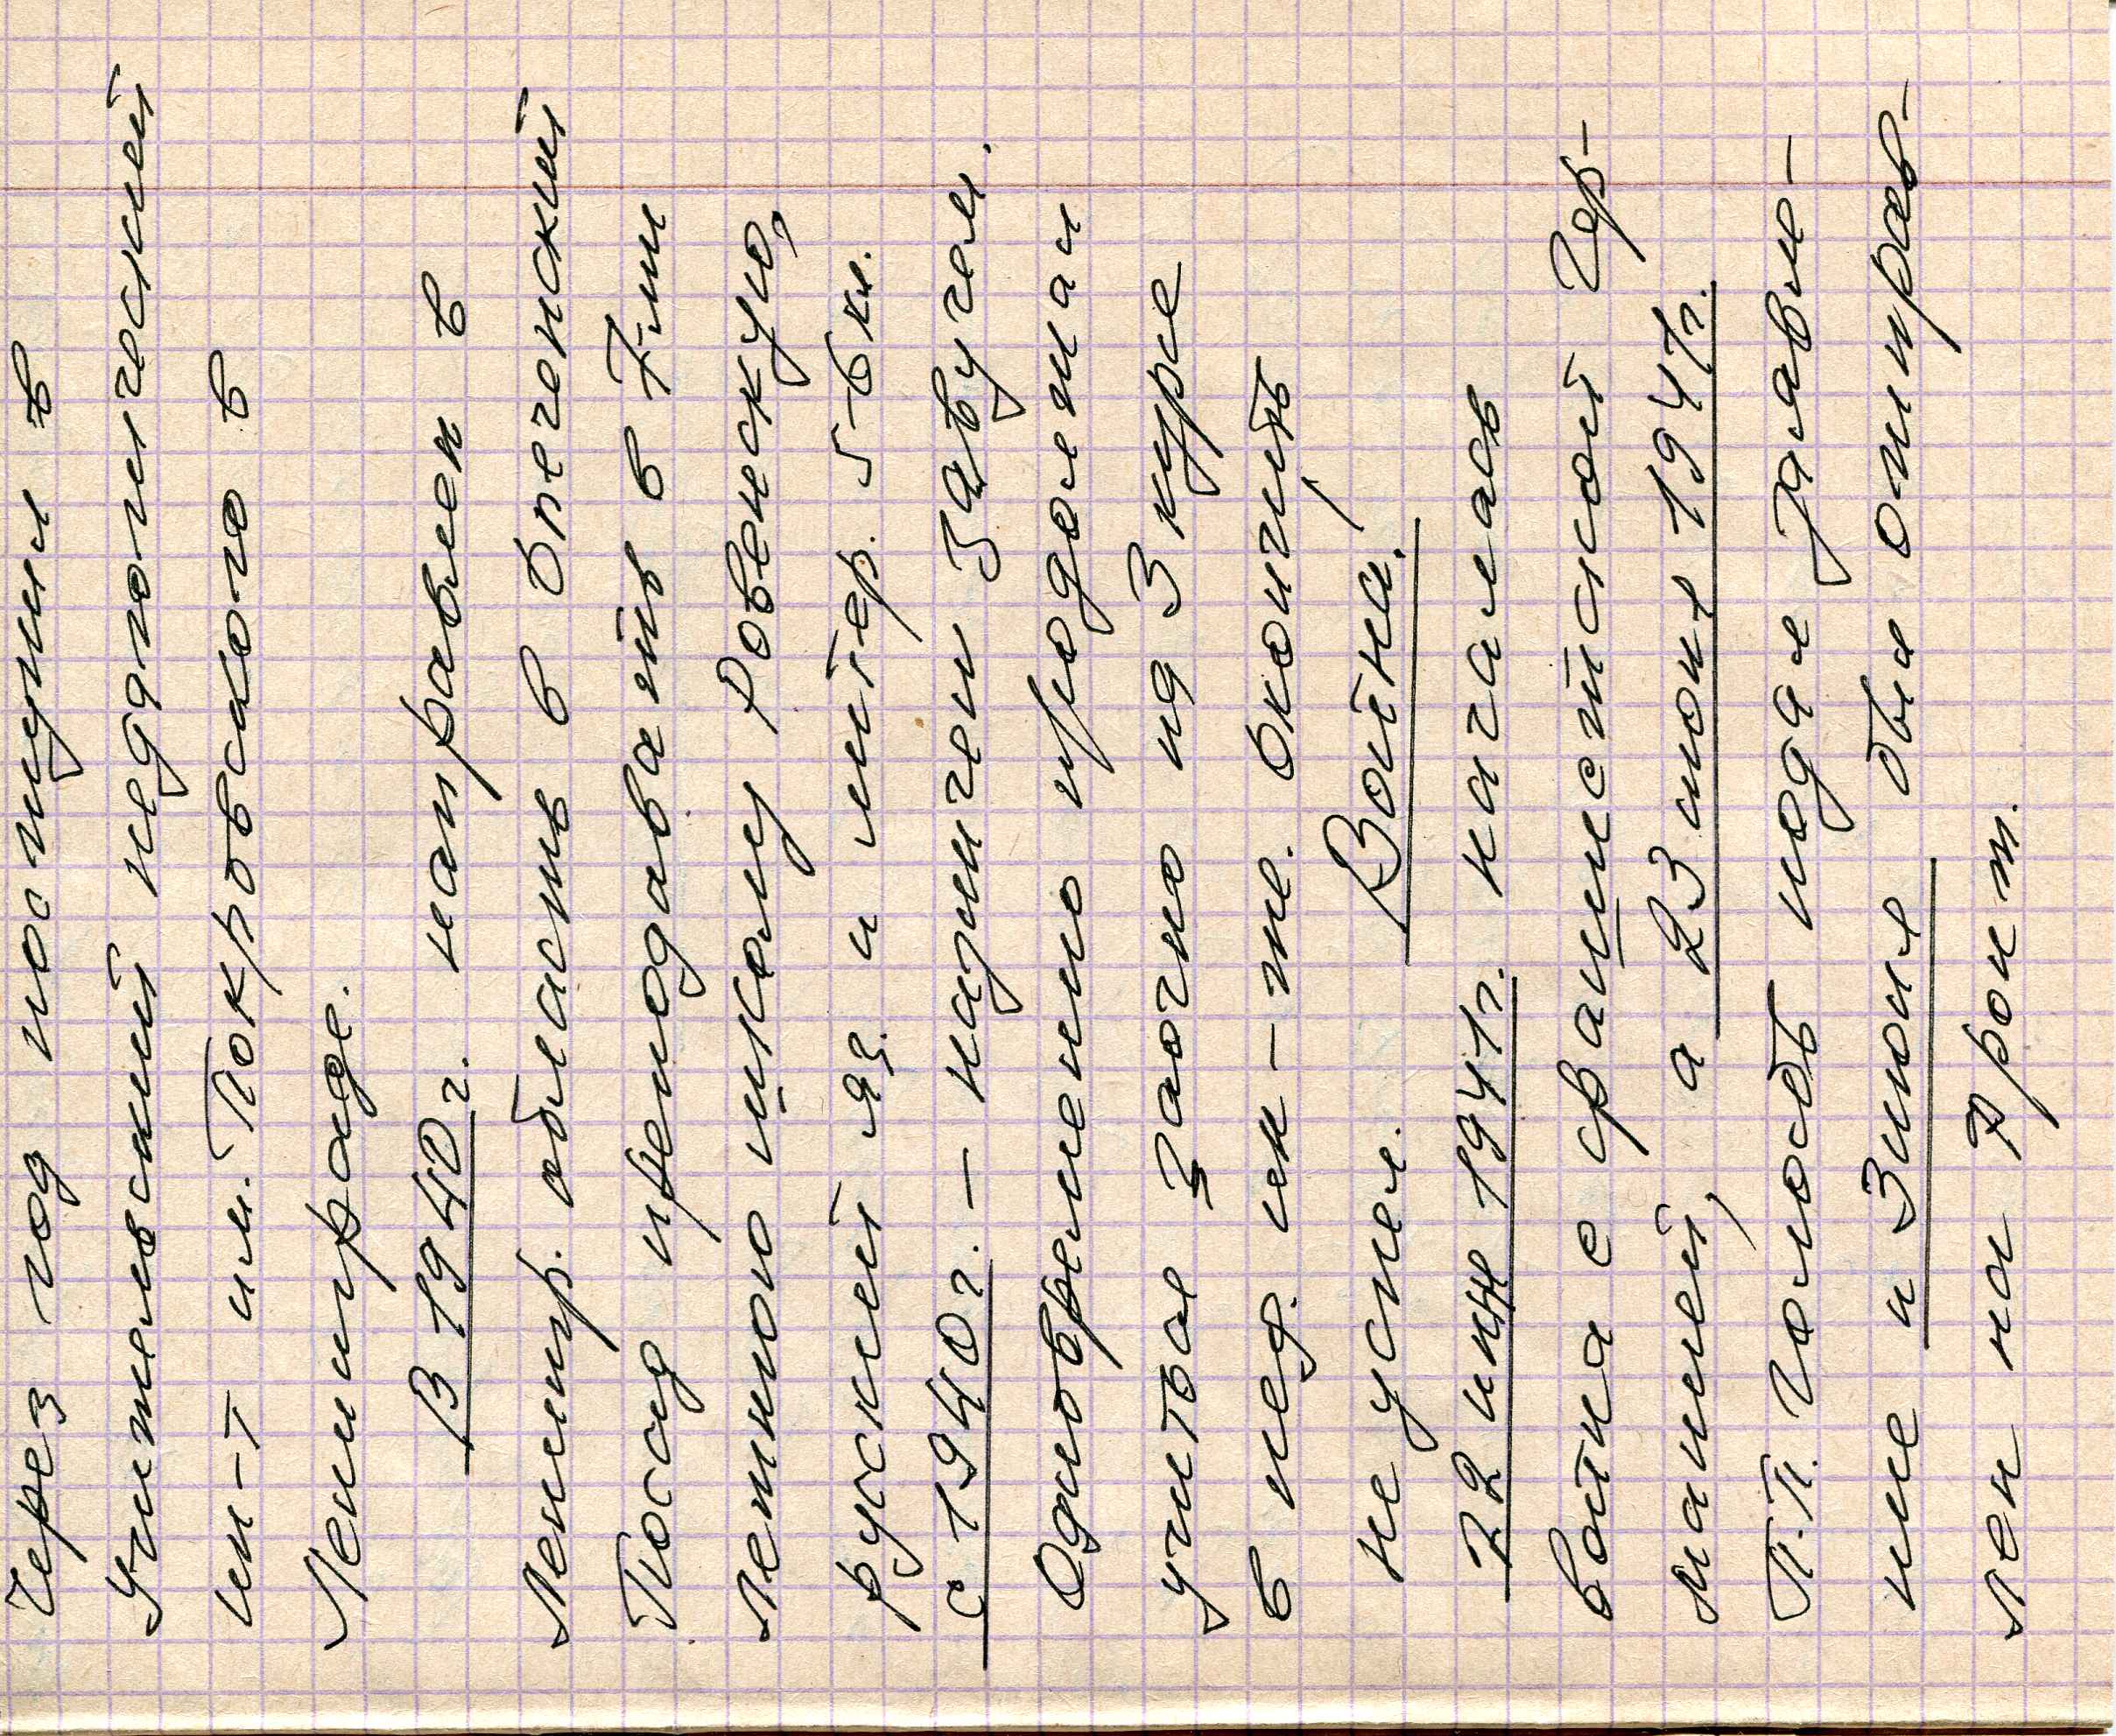 Через год поступил в
Учительский педагогический
ин-т им. Покровского в
Ленинграде.
В 1940 г. направлен в
Ленингр. область в Опеченский
Посад преподавать в 7-ми
летнюю школу Ровенскую,
русский яз. и литер. 5-6 кл.
с 1940 г. – назначен Завучем.
Одновременно продолжал
учиться Заочно на 3 курсе
в пед. ин-те. Окончить
не успел. Война!
22 июня 1941 г. началась
война с фашистской Гер-
манией, а 23 июня 1941 г.
П.П. Голосов подал заявле-
ние и 3 июля был отправ-
лен на Фронт.